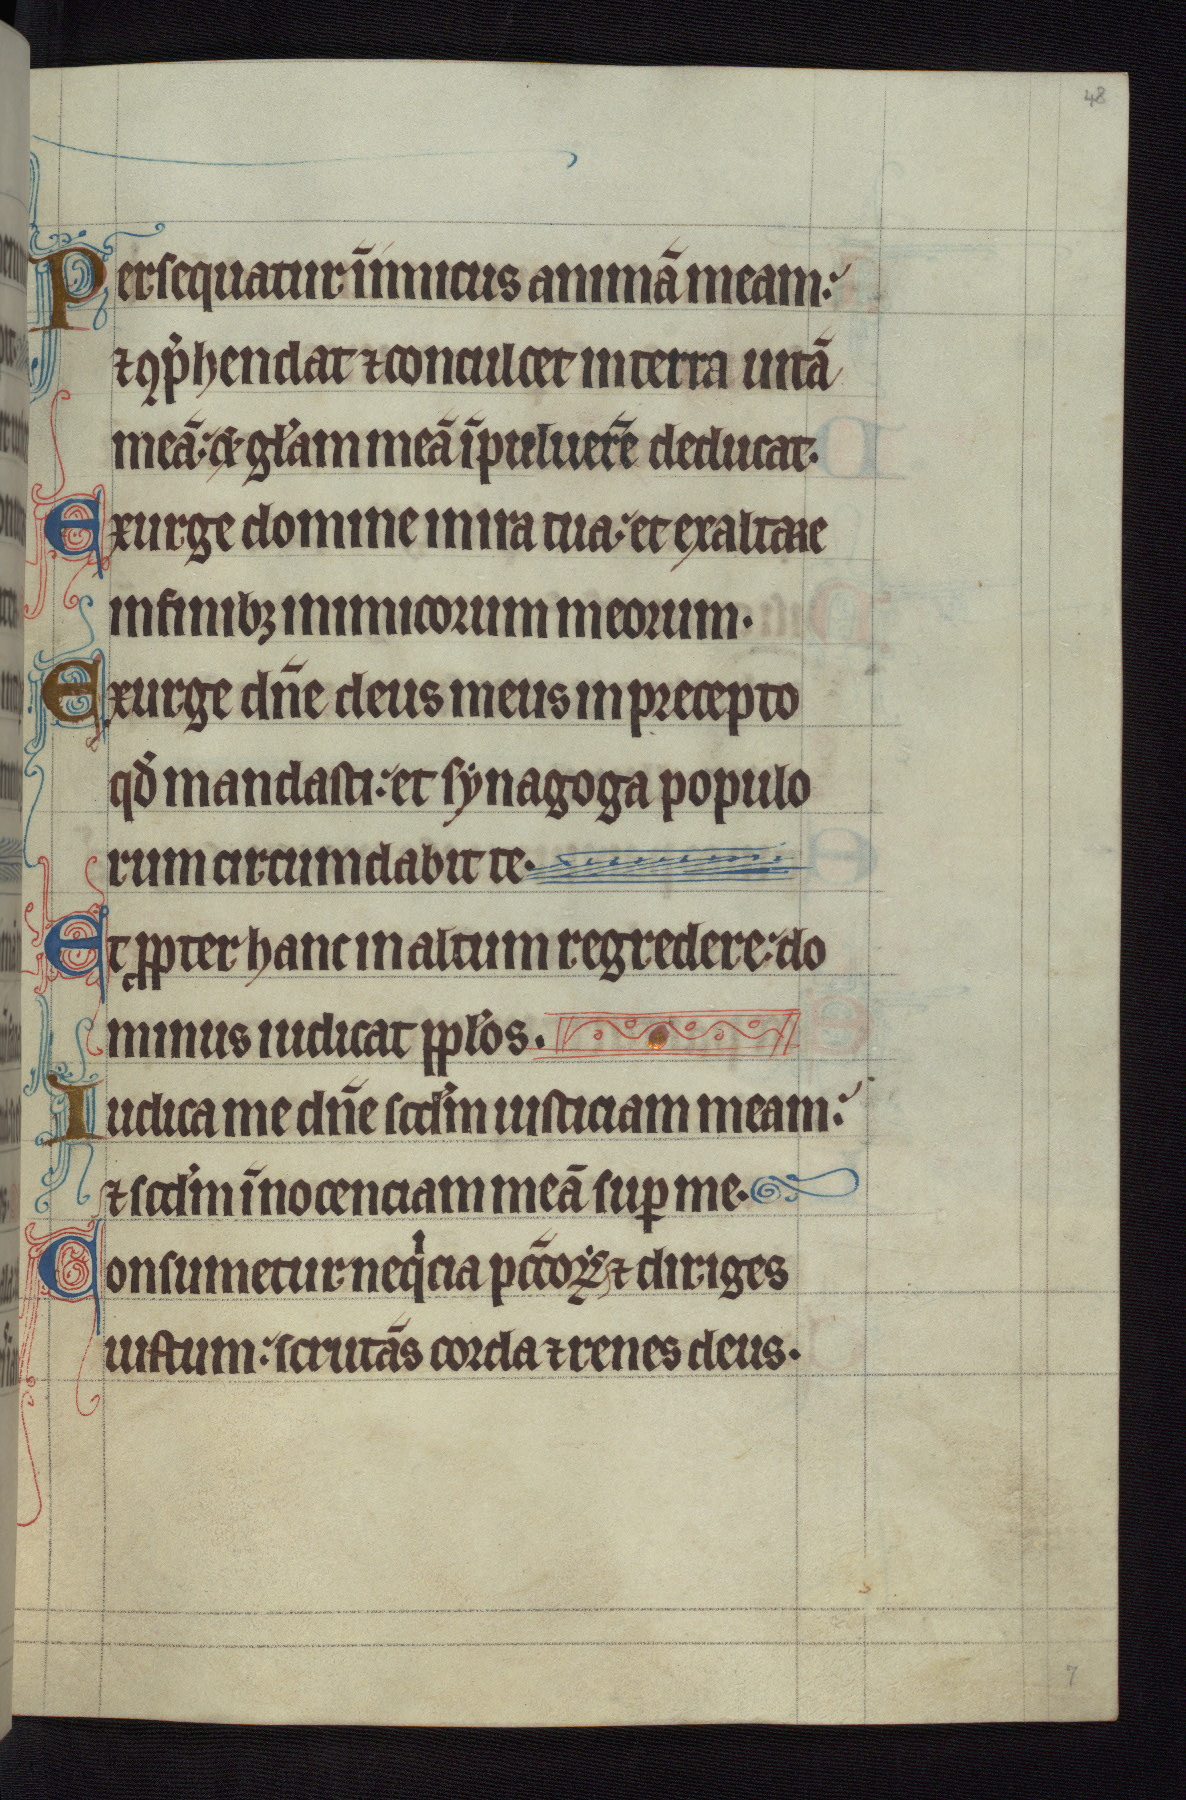 48
Persequatur ĩimicus animã meam:
⁊ ꝯp̃hendat ⁊ conculcet in terra uitã
meã: ⁊ gl̃am meã ĩ puluerẽ deducat.
Exurge domine in ira tua: et exaltare
in finibꝫ inimicorum meorum.
Exurge dñe deus meus in precepto
qđ mandasti: et sẏnagoga populo
rum circumdabit te.
Et ꝓpter hanc in altum regredere: do
minus iudicat ppl̃os.
Iudica me dñe scđm iusticiam meam:
⁊ scđm ĩnocenciam meã suꝑ me.
Consumetur neqͥcia pcc̃oꝝ: ⁊ diriges
iustum: scrutãs corda ⁊ renes deus.
7